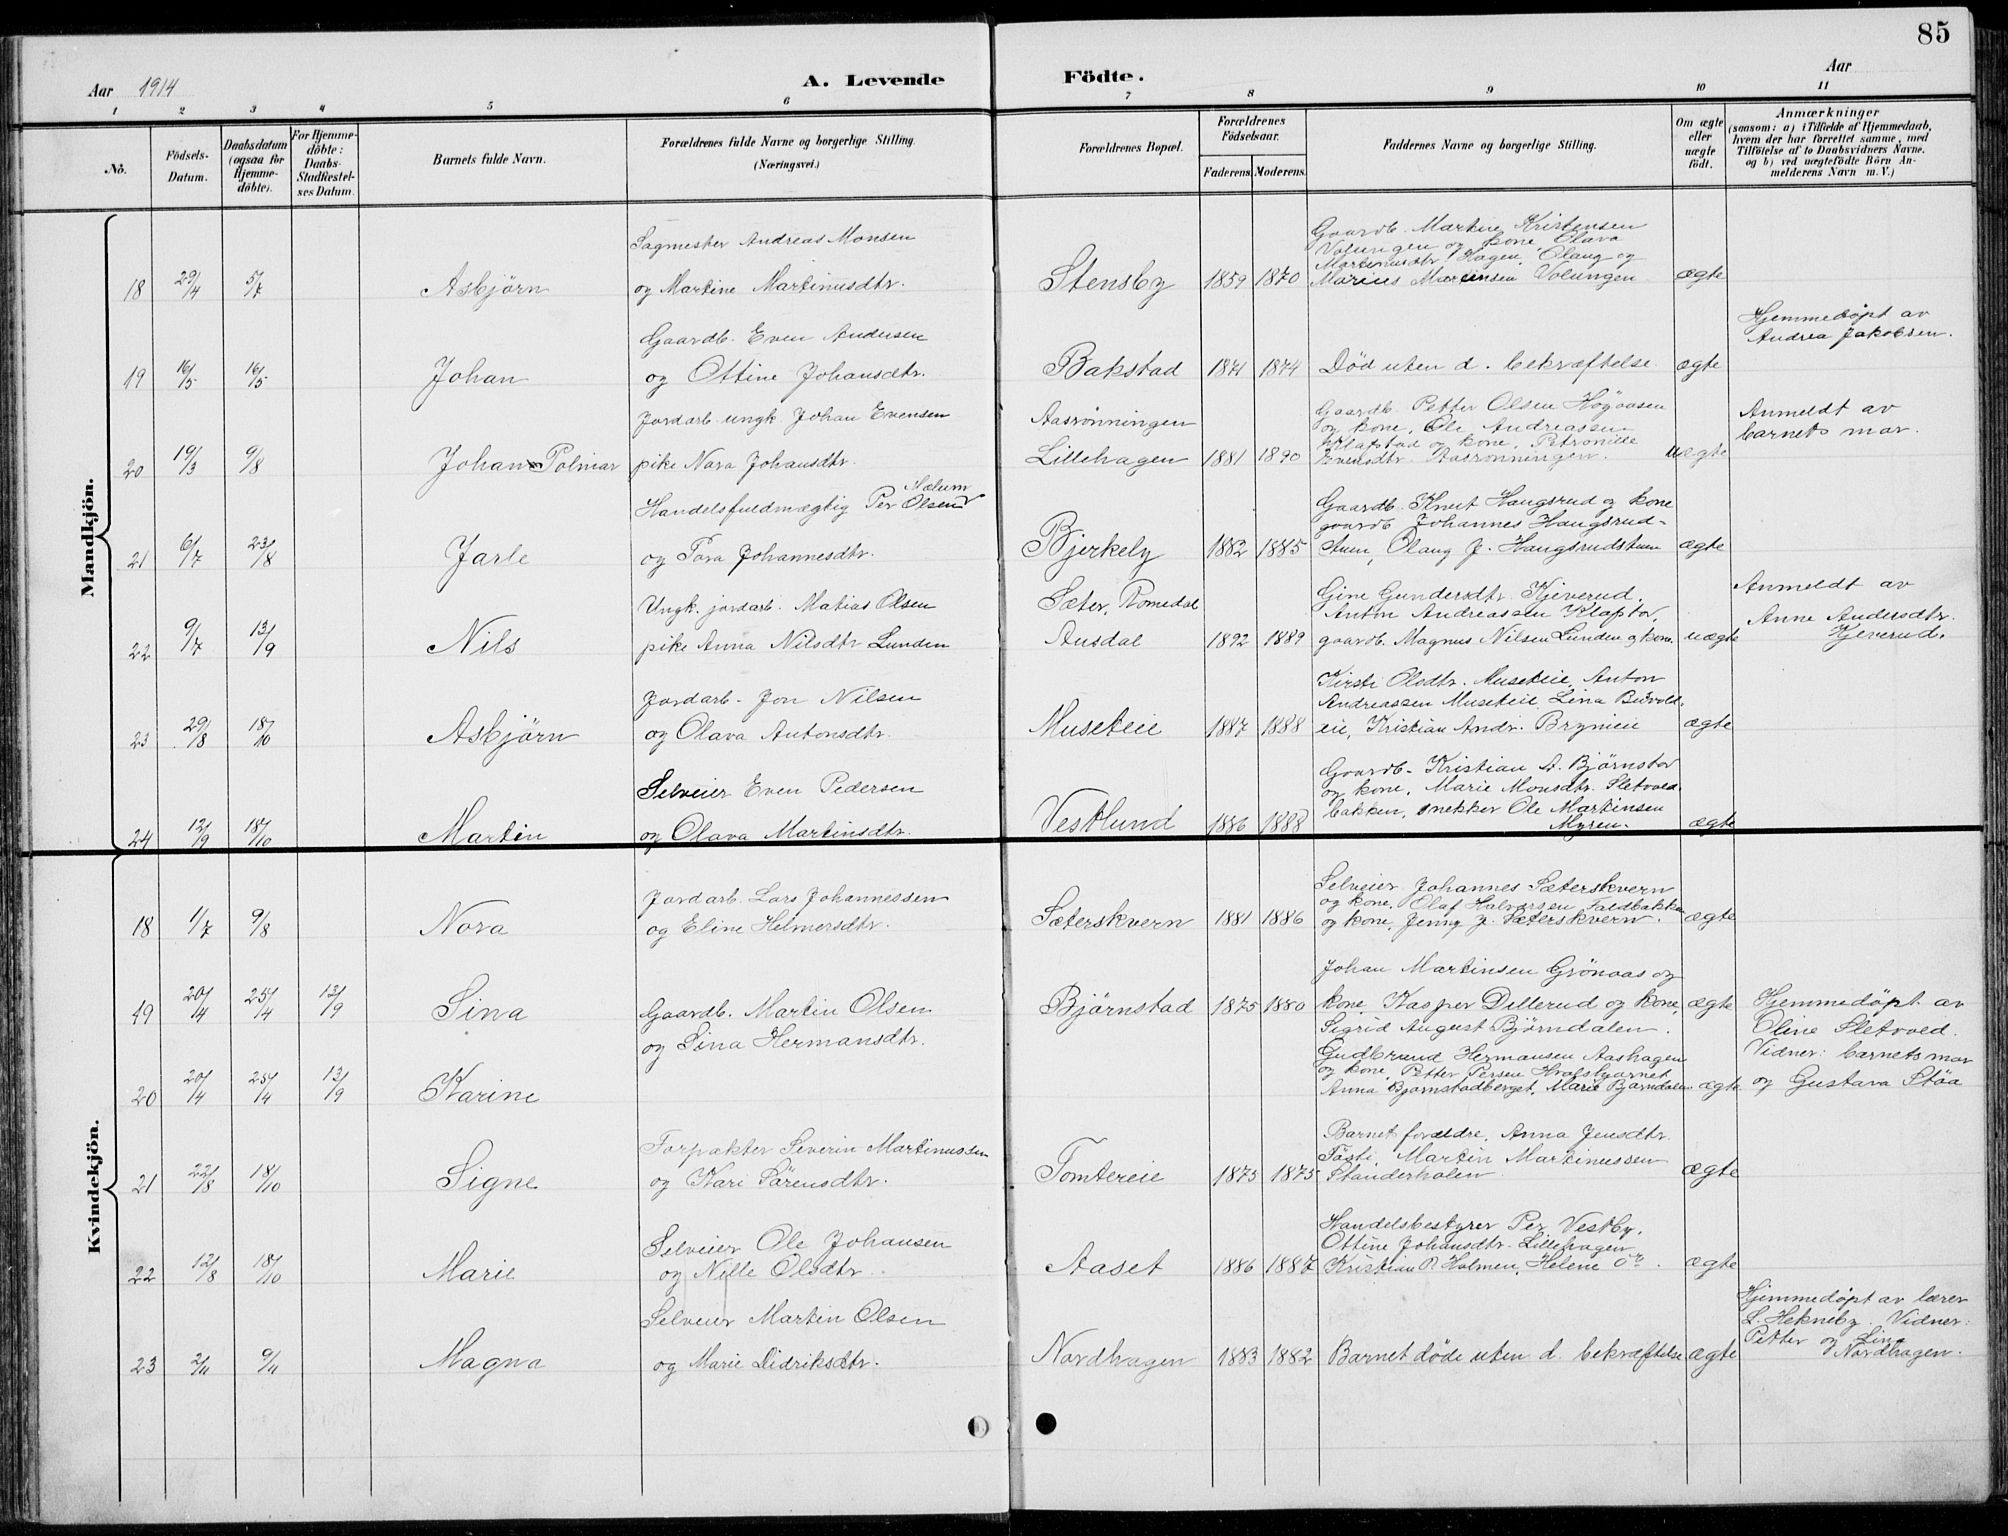 85
Aar 1914
A. Levende Födte.
Aar
1 2 3 4 5 6 7 8 9 10 11
No.
Födsels-Datum.
Daabsdatum (ogsaa for Hjemme-döbte).
For Hjemme-döbte: Daabs-Stadfæstel-ses Datum.
Barnets fulde Navn.
Forældrenes fulde Navne og borgerlige Stilling.
(Næringsvei.)
Forældrenes Bopæl.
Forældrenes Födselsaar.
Faderens. Moderens.
Faddernes Navne og borgerlige Stilling.
Om ægte eller uægte födt.
Anmærkninger
(saasom: a) i Tilfælde af Hjemmedaab,
hvem der har forrettet samme, med
Tilföielse af to Daabsvidners Navne,
og b) ved uægtefödte Börn An-
melderens Navn m. V.)
Mandkjön.
Sagmester Andreas Monsen
Gaardb. Martin Kristensen
Volungen og kone, Olava
Martinusdtr Hagen, Olaug og
18 29/4 5/7 Asbjörn og Martine Martinusdtr. Stensby 1859 1870 Marius Martinsen Volungen ægte
Gaardb. Even Andersen
Hjemmedöpt av
Andrea Jakobsen.
19 16/5 16/5 Johan og Ottine Johansdtr. Bakstad 1871 1874 Död uten d. bekræftelse ægte
Jordarb. ungk. Johan Evensen Aasrönningen
Gaardb. Petter Olsen Högaasen
og kone, Ole Andreassen
Klafstad og kone, Petronille
Anmeldt av
barnets mor.
20 19/3 9/8 Johan Polmar pike Nora Johansdtr. Lillehagen 1881 1890 Evensdtr. Aasrönningen. uægte
Mælum
Handelsfuldmægtig Per Olsen
Gaardb. Knut Haugsrud og kone
gaardb. Johannes Haugsrud-
21 6/7 23/8 Jarle og Tora Johannesdtr. Bjerkely 1882 1885 stuen, Olaug J. Haugsrudstuen ægte
Ungk. jordarb. Matias Olsen Sæter, Romedal
Gine Gundersdtr. Kjeverud,
Anton Andreassen Klafstad,
Anmeldt av
Anne Andersdtr.
Kjeverud.
22 9/7 13/9 Nils pike Anna Nilsdtr Lunden Ausdal 1892 1889 gaardb. Magnus Nilsen Lunden og kone. uægte
Jordarb. Jon Nilsen
Kirsti Olsdtr. Museteie, Anton
Andreassen Museteie, Lina
23 29/8 18/10 Asbjörn og Olava Antonsdtr. Museteie 1887 1888 eie, Kristian Andr. Brynieie ægte
Selveier Even Pedersen
Gaardb. Kristian A. Björnstad
og kone, Marie Monsdtr. Sletvold-
bakken, snekker Ole Martinsen
Myren.
24 12/9 18/10 Martin og Olava Martinsdtr. Vestlund 1886 1888 ægte
Kvindekjön.
Jordarb. Lars Johannessen
Selveier Johannes Sæterskvern
og kone, Olaf Halvorsen Faldbakken
18 1/7 9/8 Nora og Eline Helmersdtr. Sæterskvern 1881 1886 og kone, Jenny J. Sæterskvern. ægte
Johan Martinsen Grönaas og
19 20/4 25/4 13/9 Sina Gaardb. Martin Olsen Björnstad 1875 1880 kone, Kasper Dillerud og kone, ægte Hjemmedöpt av
og Sina Hermansdtr.
Sigrid August Björndalen.
Oline Sletvold.
Gudbrand Hermansen Aashagen
og kone, Petter Persen
Vidner: barnets mor
20 20/4 25/4 13/9 Karine Anna Björnstadberget, Marie Björndalen ægte og Gustava Stöa
Forpakter Severin Martinussen
Barnet forældre, Anna Jensdtr.
Tösti, Martin Martinussen
21 22/8 18/10 Signe og Kari Sörensdtr. Tomtereie 1875 1875 Standerholen ægte
Selveier Ole Johansen
Handelsbestyrer Per Vestby,
Ottine Johansdtr. Lillehagen
22 12/8 18/10 Marie og Nille Olsdtr. Aaset 1886 1887 Kristian P. Holmen, Helene do. ægte
Selveier Martin Olsen
Hjemmedöpt av lærer
L. Hekneby. Vidner:
Petter og Lina
Nordhagen.
23 2/11 9/11 Magna og Marie Didriksdtr. Nordhagen 1883 1882 Barnet döde uten d. bekræftelse ægte